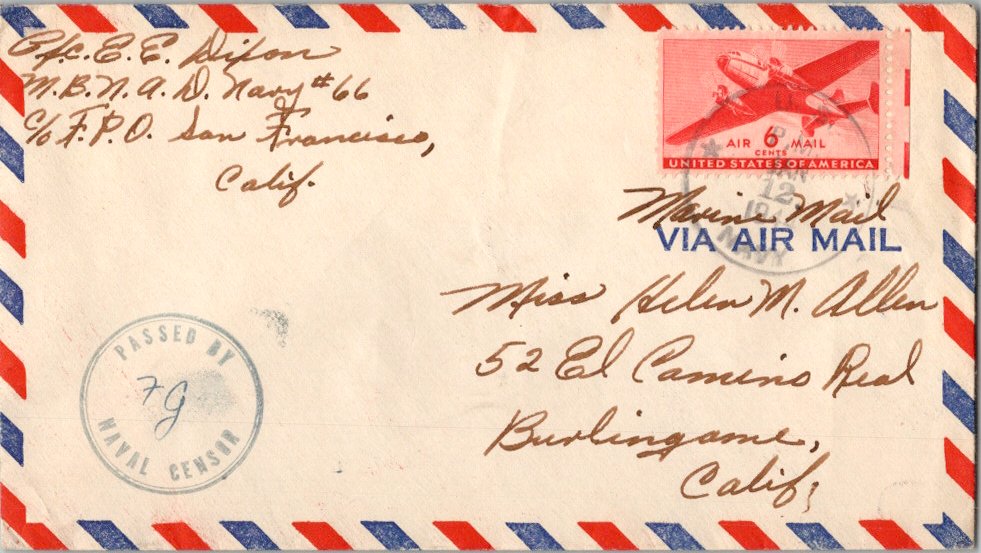 Pfc. E. E. Dixon
M.B.N.A.D. Navy #66
c/o F.P.O. San Francisco,
Calif.
AIR 6 MAIL
CENTS
UNITED STATES OF AMERICA
JAN
12
NAVY
Marine Mail
VIA AIR MAIL
Miss Helen M. Allen
52 El Camino Real
Burlingame,
Calif.
PASSED BY
FG
NAVAL CENSOR